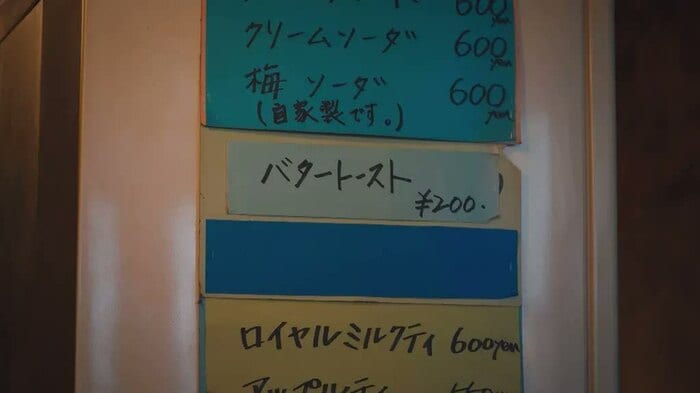 600
yen
クリームソーダ 600
yen
梅ソーダ 600
(自家製です。) yen
バタートースト
¥200.
ロイヤルミルクティ 600yen
アップルティ